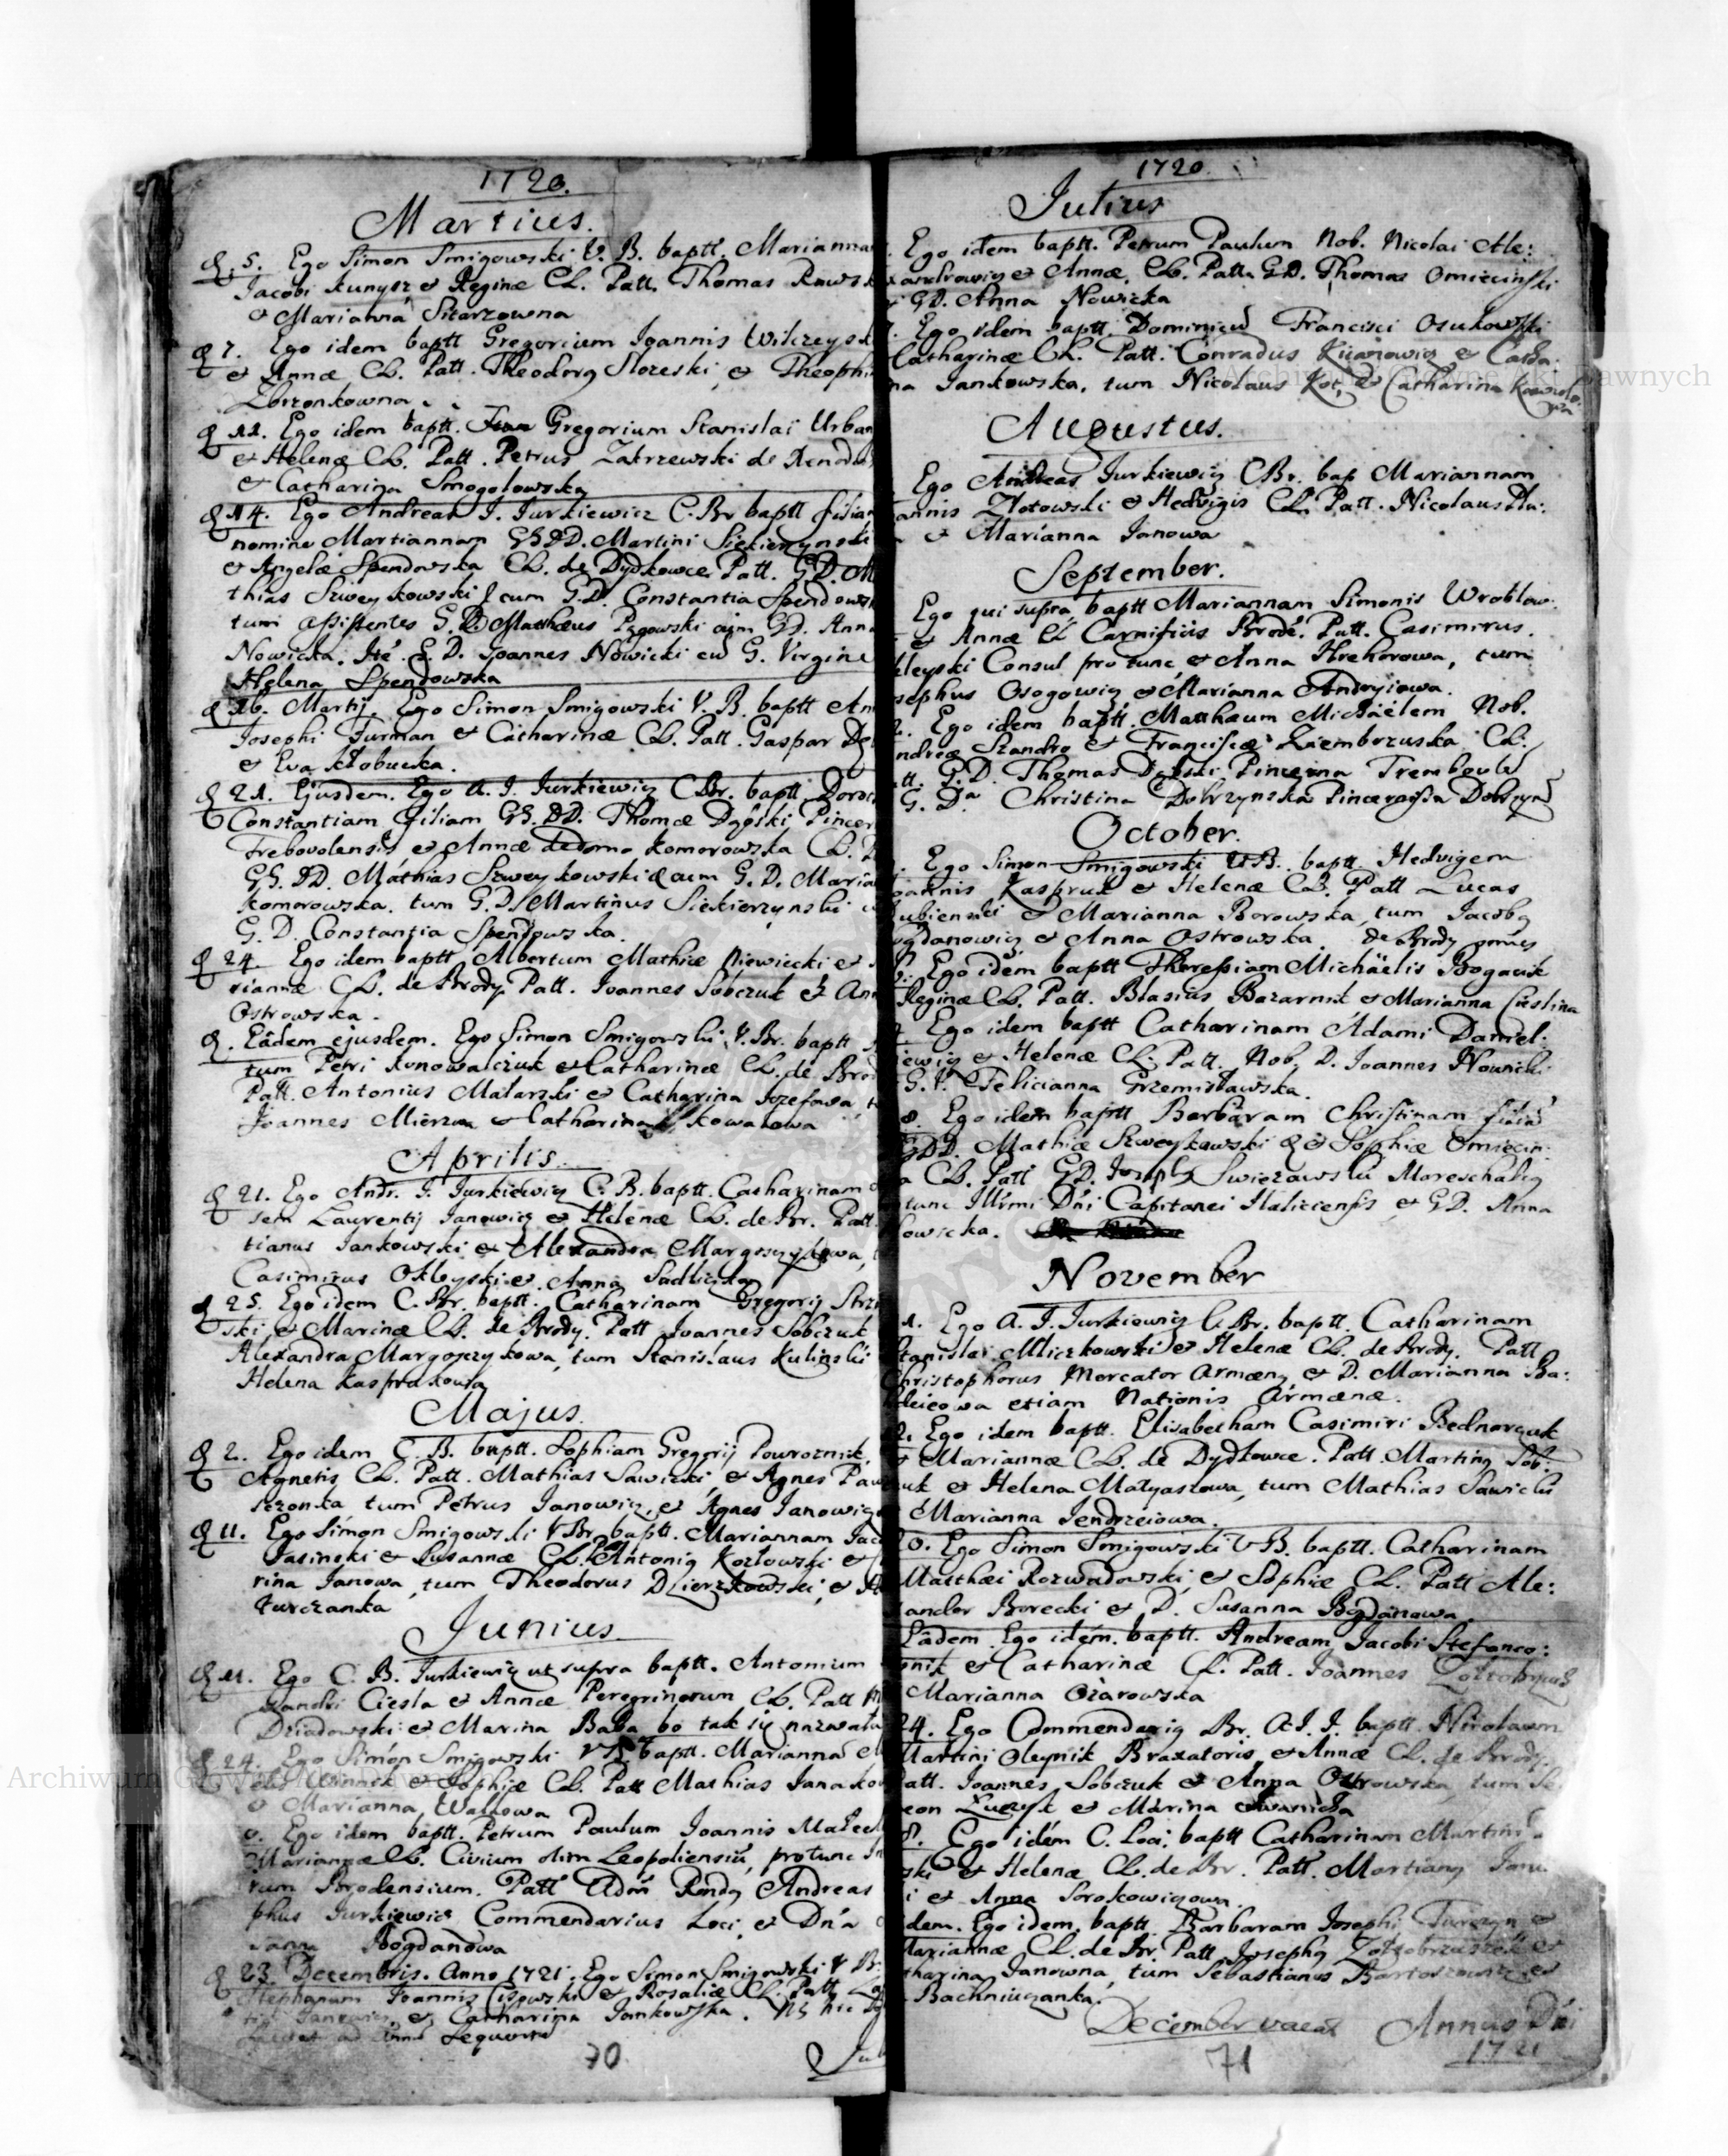 1720.
Martius.
5. Ego Simon Smigowski V. B. baptt. Marianna
Jacobi Kunysz et Reginæ CL. Patt. Thomas Rawsk
et Marianna Sitarzowna
7. Ego idem baptt Gregorium Joannis Wilczeysk
et Annæ CL. Patt. Theodorg et Theophi
Zbrzonkowna
12. Ego idem baptt. Gregorium Stanislai Urban
et Helenæ CL. Patt. Petrus Zakrzewski de
et Catharina Smogolowska
14. Ego Andreas J. Jurkiewicz C. Br baptt filiam
nomine Martiannam GG DD. Martini Siekierzynski
et Angelæ Spendowska CL. de Dydkowce Patt. G.D. M
thias Szweykowski cum G.D. Constantia Spendowsk
tum assistentes G. D. Matthæus Pągowski cum GD. Anna
Nowicka. Ite. G. D. Joannes Nowicki cu G. Virgine
Helena Spendowska
16. Martij. Ego Simon Smigowski V. B. baptt An
Josephi Furman et Catharinæ CL. Patt. Gaspar
et Eva Kłobucka.
21. Ejusdem. Ego A. J. Jurkiewicz C Br. baptt Doro
Constantiam filiam GG. DD. Thomæ Dąbski Pincer
Trebovolensis et Annæ de domo Komorowska CL.
GG. DD. Mathias Szweykowski cum G. D. Maria
Komorowska. tum G. D. Martinus Siekierzynski
G. D. Constantia Spendowska.
24. Ego idem baptt Albertum Mathiæ Niewiecki et
riannæ CL. de Brody Patt. Joannes Sobczuk et An
Ostrowska.
Eâdem ejusdem. Ego Simon Smigowski V. Br. baptt
tum Petri Konowalczuk et Catharinæ CL. de Brod
Patt. Antonius Malarski et Catharina Jozefowa
Joannes Mierzwa et Catharina Kowalowa
Aprilis.
21. Ego Andr. J. Jurkiewicz C. B. baptt. Catharinam
sem Laurentij Janowicz et Helenæ CL. de Br. Patt.
tianus Jankowski et Alexandra Margoszykowa,
Casimirus Okleyski et Anna Sadlicka
25. Ego idem C. Br. baptt. Catharinam Gregorij Strz
ski et Marinæ CL. de Brody. Patt Joannes Sobczuk
Alexandra Margoszykowa, tum Stanislaus Kulinski
Helena Kasprukowa
Majus.
2. Ego idem C. B. baptt. Sophiam Gregorij Powroznik,
Agnetis CL. Patt. Mathias Sawicki, et Agnes Paw
sczonka tum Petrus Janowicz, et Agnes Janowicz
11. Ego Simon Smigowski V Br. baptt. Mariannam Jac
Jasinski et Susannæ CL. Antonig Kozłowski et
rina Janowa, tum Theodorus Dzierzkowski, et
Turczanka
Junius.
11. Ego C. B. Jurkiewicz ut supra baptt. Antonium
Ciesla et Annæ Peregrinorum CL. Patt
Dziadowski et Marina Baba bo tak się nazwała
24. Ego Simon Smigowski V B baptt. Marianna
Winnik et Sophiæ CL. Patt Mathias Janako
et Marianna Walkowa
Ego idem baptt. Petrum Paulum Joannis Małec
Mariannæ CL. Civium olim Leopoliensiu, pro tunc
rum Brodensium. Patt Adm Rndg Andreas
phus Jurkiewicz Commendarius Loci et Dna
sanna Bogdanowa
23. Decembris. Anno 1721. Ego Simon Smigowski V B.
Stephanum Joannis Cisowski et Rosaliæ CL. Patt
Janowicz, et Catharina Jankowska. NB hic
ad Annu Sequente
70
Jul
1720.
Julius
Ego idem baptt. Petrum Paulum Nob. Nicolai Ale:
xandrowicz et Annæ, CL. Patt. GD. Thomas Omiecinski
GD. Anna Nowicka
Ego idem baptt. Dominicu Francisci Osukowski
Catharinæ CL. Patt. Conradus Kijanowicz et Catha:
na Jankowska, tum Nicolaus Kot, et Catharina
Augustus.
Ego Andreas Jurkiewicz C Br. bap Mariannam
oannis Złotowski et Hedvigis CL. Patt. Nicolaus
et Marianna Janowa
September.
Ego qui supra baptt Mariannam Simonis Wroblow:
et Annæ CL Carnificis Brode. Patt. Casimirus.
kleyski Consul pro tunc, et Anna Hrehorowa, tum
sephus Osogowicz et Marianna Andryiowa.
Ego idem baptt. Matthæum Michäelem Nob.
ndreæ Szandro et Franciscæ Ziembrzuska CL.
tt. G.D. Thomas Dąbski Pincerna Trembowl
G. Da Christina Dobrzynska Pincernissa Dobrzyn
October.
Ego Simon Smigowski V B. baptt. Hedvigem
oannis Kaspruk et Helenæ CL. Patt Lucas
ubienski et Marianna Borowska, tum Jacobg
ogdanowicz et Anna Ostrowska. de Brody omnes
Ego idem baptt Theressiam Michäelis Bogacik
Reginæ CL. Patt. Blasius Bazarnik et Marianna Cieslina
Ego idem baptt Catharinam Adami Daniel:
iewicz et Helenæ CL. Patt. Nob. D. Joannes Nowicki
G. V. Felicianna Grzemisławska.
8. Ego idem baptt Barbaram Christinam filia
GDD. Mathiæ Szweykowski et Sophiæ Omiecin:
a CL. Patt GD. Josephg Swieżawski Mareschalg
tunc Illrmi Dni Capitanei Haliciensis et GD. Anna
owicka.
November
1. Ego A. J. Jurkiewicz C Br. baptt. Catharinam
Stanislai Mliczkowski et Helenæ CL. de Brody. Patt
Christophorus Mercator Armeng et D. Marianna Ba:
leicowa etiam Nationis Armænæ.
2. Ego idem baptt. Elisabetham Casimiri Bednarczuk
et Mariannæ CL. de Dydkowce. Patt. Marting Sob:
uk et Helena Matyaszowa, tum Mathias Sawicki
Marianna Jendrzeiowa.
0. Ego Simon Smigowski V B. baptt. Catharinam
Matthæi Rozwadowski, et Sophiæ CL. Patt Ale:
ander Borecki et D. Susanna Bogdanowa.
Eâdem. Ego idem. baptt. Andream Jacobi Stefanco:
onik et Catharinæ CL. Patt. Joannes
Marianna Ożarowska
24. Ego Commendarig Br. A. J. J. baptt. Nicolaum
Martini Oleynik Braxatoris, et Annæ CL. de Brody.
Patt. Joannes Sobczuk et Anna Ostrowska, tum Si
eon Luczyk et Marina Iwanicha
8. Ego idem C. Loci. baptt Catharinam Martini
ski et Helenæ CL. de Br. Patt. Martiang Janu
i et Anna Sorokowiczowa.
idem. Ego idem, baptt. Barbaram Josephi Turczyn et
Mariannæ CL. de Br. Patt. Josephg et
tharina Janowna, tum Sebastianus Bartoszowicz et
Bachniuczanka.
December vacat Annus Dni
71 1721
Archiwum Główne Akt Dawnych
Archiwum Główne Akt Dawnych